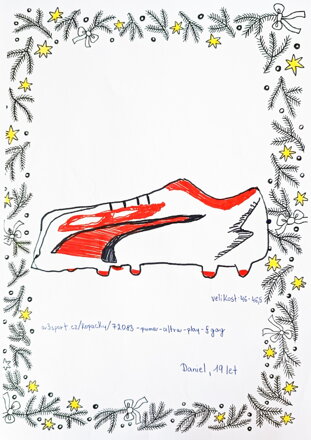 velikost 46-46,5
w3sport.cz/kopacky/72083-puma-ultra-play-fgag
Daniel, 19 let